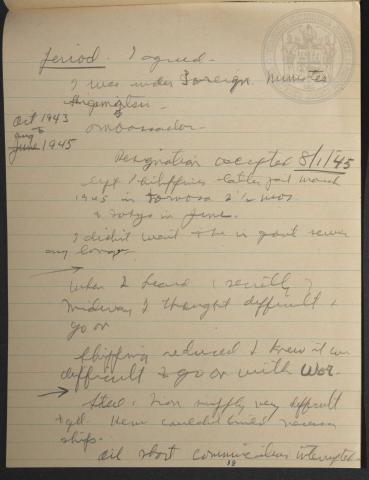 period. I agreed.
I was under Foreign Minister
Shigemitsu
Oct 1943
aug to
June 1945
ambassador
Resignation accepted 8/1/45
left Philippines latter part March
1945 in Formosa 2 1/2 mos
Tokyo in June.
I didn't want to be in govt
any longer
When I heard (secretly)
Midway I thought difficult to
go on
Shipping reduced I knew it was
difficult to go on with War.
Steel & iron supply very difficult
to get. Hence couldn't build necessary
ships.
oil short communications interrupted